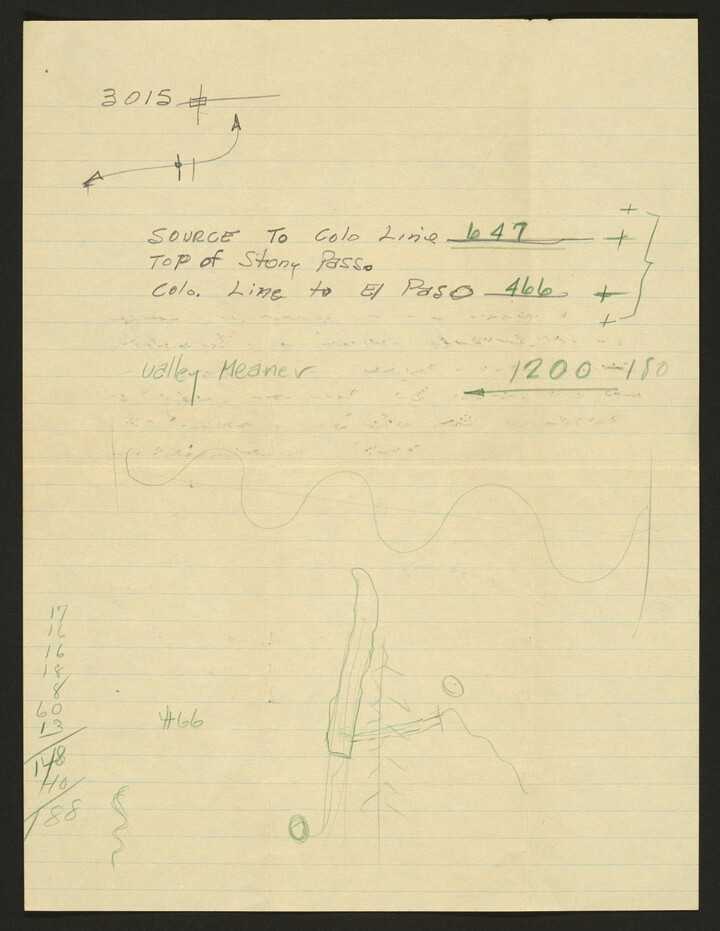 3015
SOURCE To Colo Line 647
Top of Stony Pass.
Colo. Line to El Paso 466
Valley Meaner 1200-180
17
16
16
18
8
60
13
148
40
188
466